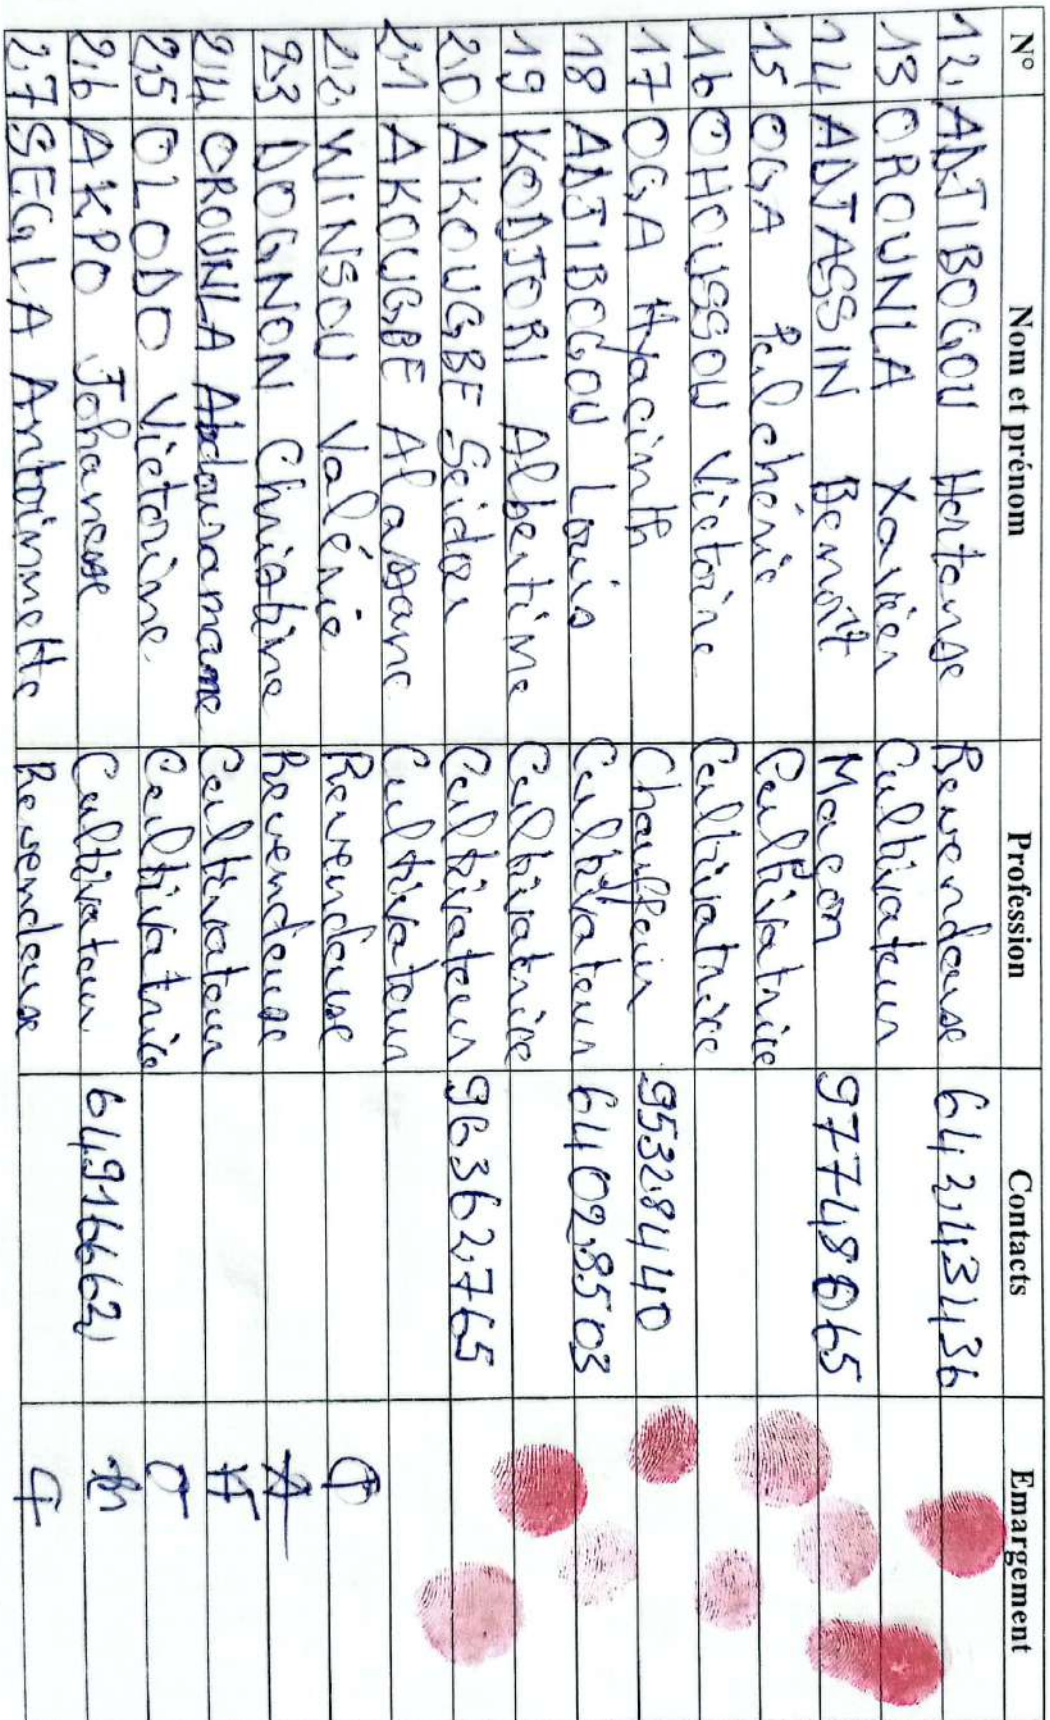 N° Nom et prénom Profession Contacts Emargement
12 ADJIBOGOU Hortense Revendeuse 64243436
13 OROUNLA Xavier Cultivateur
14 ADJASSIN Benoît Maçon 97748865
15 OGA Pulchérie Cultivatrice
16 OHOUSSOU Victoire Cultivatrice
17 OGA Hyacinth Chauffeur 95328440
18 ADJIBOGOU Louis Cultivateur 64028503
19 KODJORI Albertine Cultivatrice
20 AKOUGBE Seidou Cultivateur 96362765
21 AKOUGBE Alassane Cultivateur
22 WINSOU Valérie Revendeuse
23 DOGNON Christine Revendeuse
24 OROUNLA Abdouramane Cultivateur
25 OLODO Victorine Cultivatrice
26 AKPO Johanesse Cultivateur 64916662
27 SEGLA Antoinnette Revendeuse